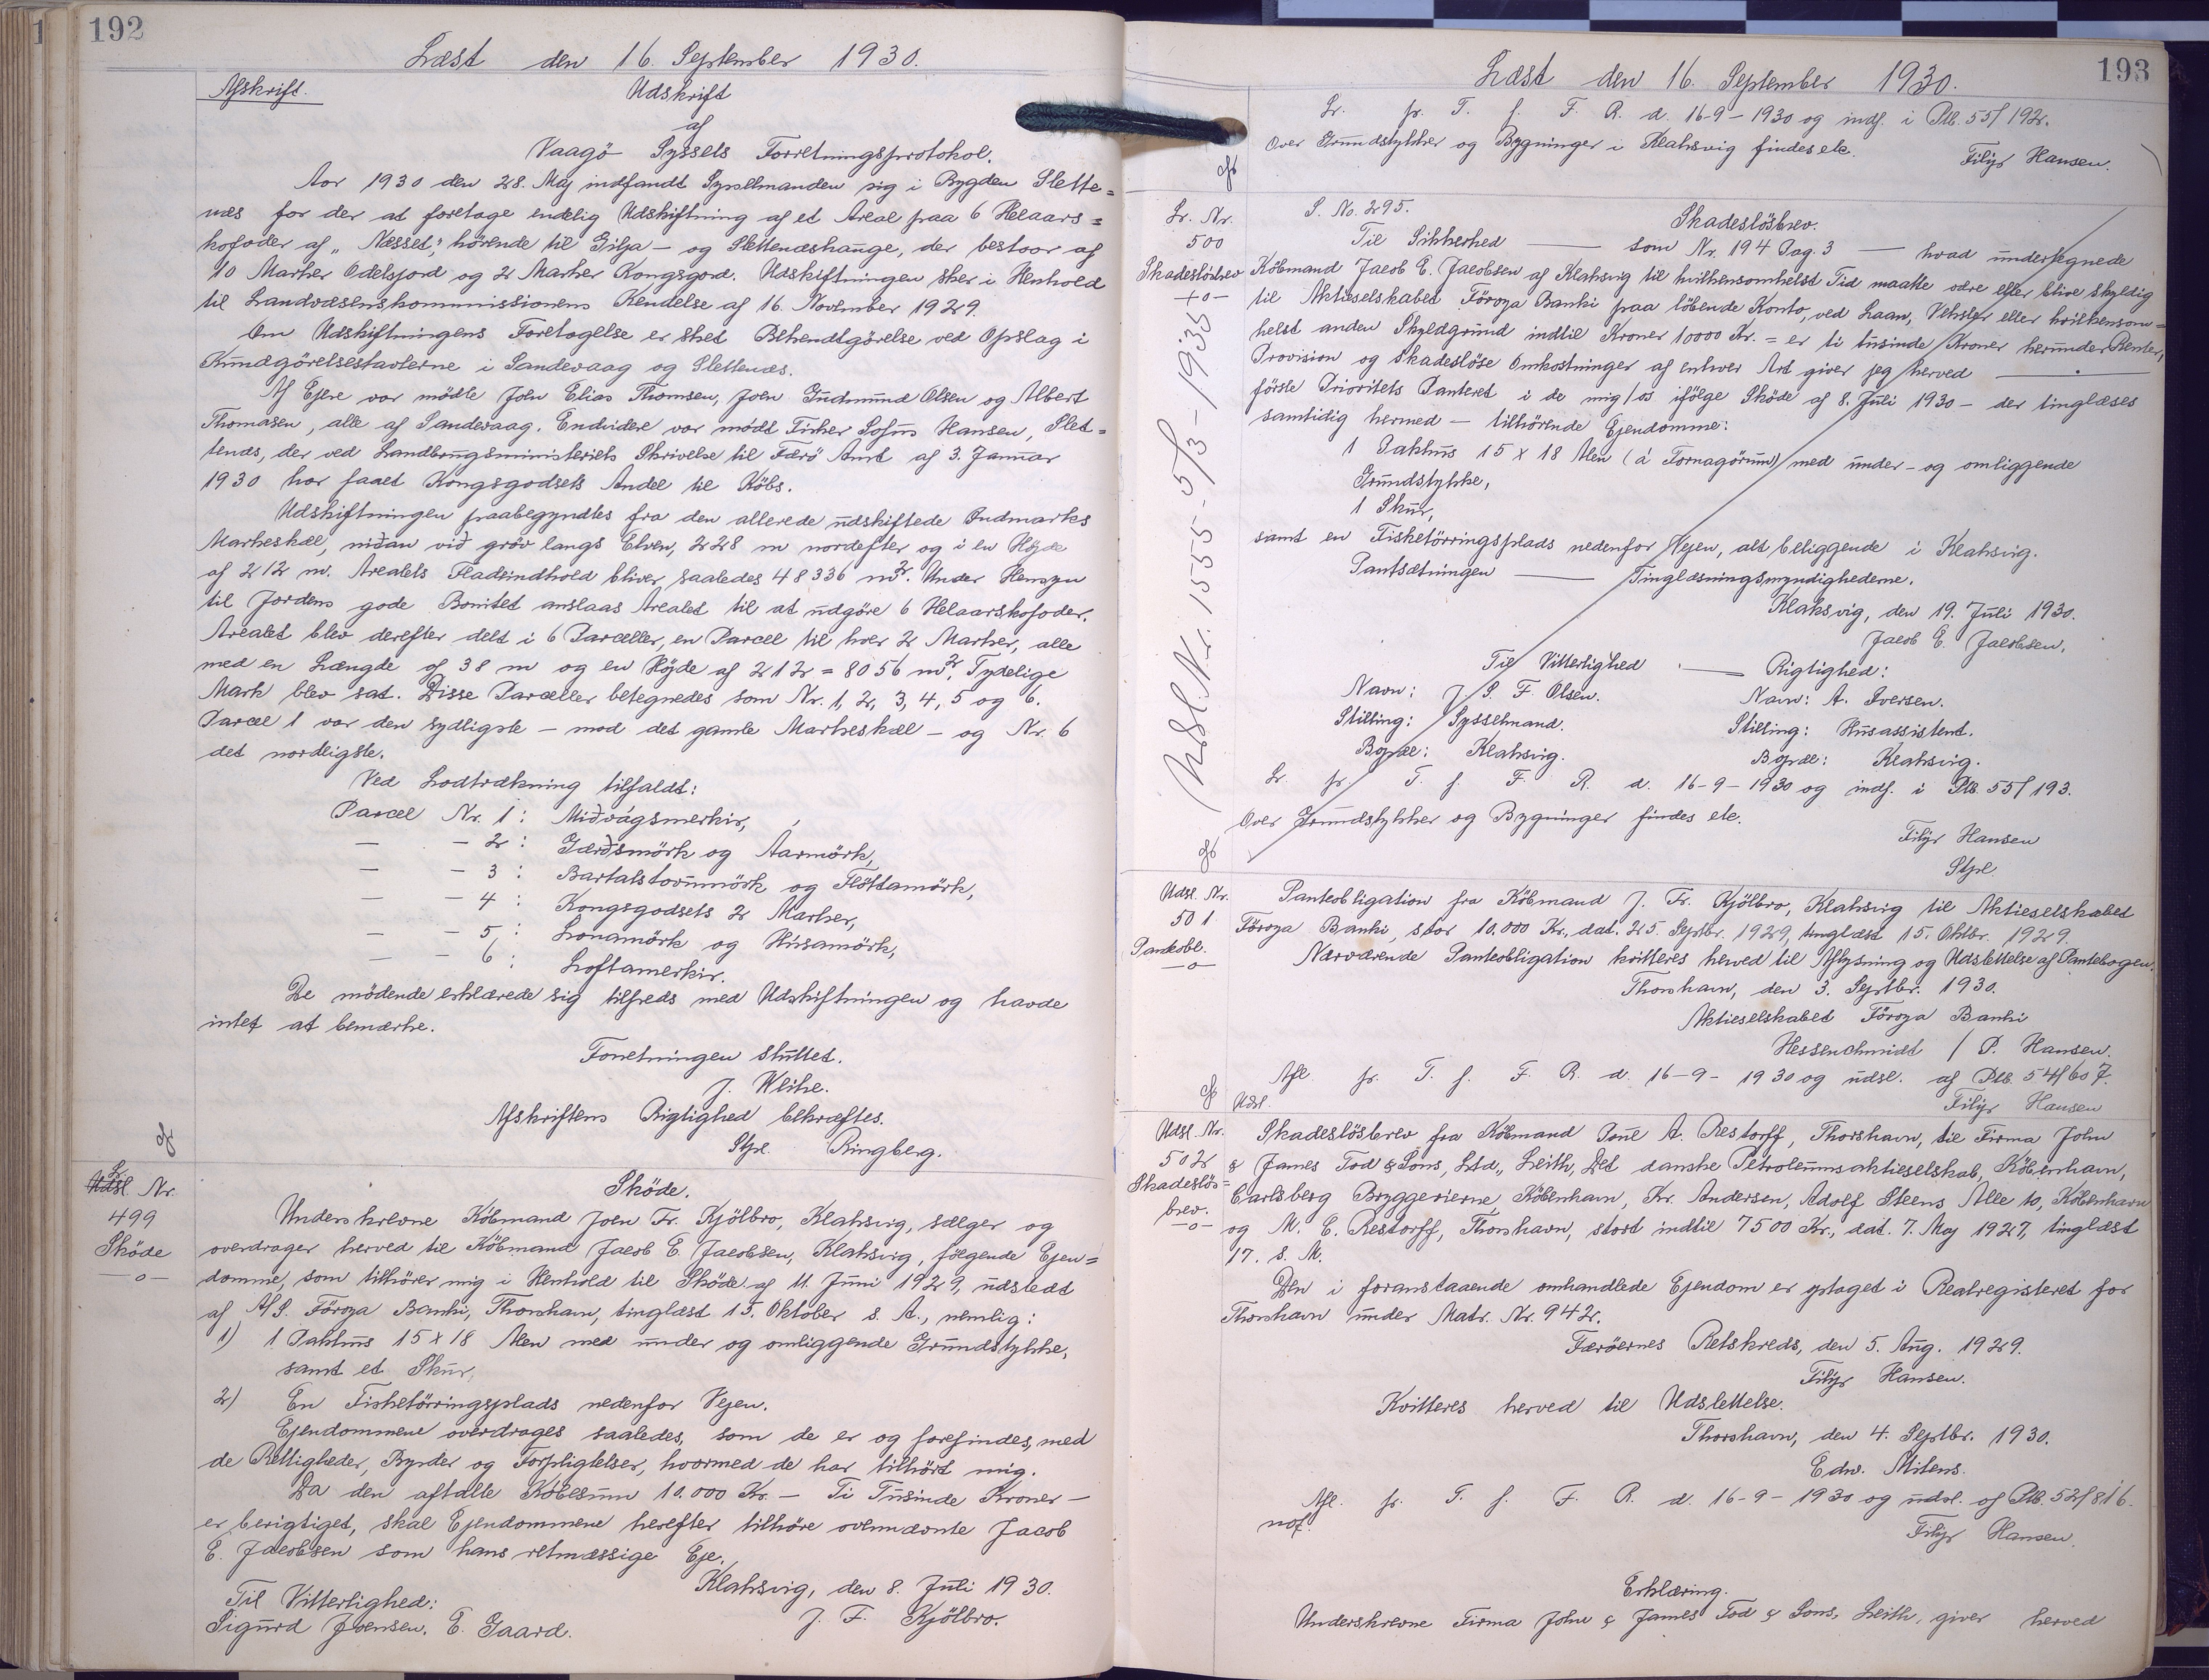 192
Læst den 16. September 1930.
Afskrift.
Udskrift
af
Vaagö Syssels Forretningsprotokol.
Aar 1930 den 28. Maj indfandt Sysselmanden sig i Bygden Slette=
næs for der at foretage endelig Udskiftning af et Areal paa 6 Helaars=
kofoder af „Næsset", hörende til Gilja- og Slettenæshauge, der bestaar af
10 Marker Odelsjord og 2 Marker Kongsgord. Udskiftningen sker i Henhold
til Landvæsenskommissionens Kendelse af 16. November 1929.
Om Udskiftningens Foretagelse er sket Bekendtgörelse ved Opslag i
Kundgörelsestavlerne i Sandevaag og Slettenæs.
Af Ejere var mödte Joen Elias Thomsen, Joen Gudmund Olsen og Albert
Thomasen, alle af Sandevaag. Endvidere var mödt Fisker Sofus Hansen, Slet=
tenæs, der ved Landbrugsministeriets Skrivelse til Færö Amt af 3. Januar
1930 har faaet Kongsgodsets Andel til Köbs.
Udskiftningen paabegyndtes fra den allerede udskiftede Indmarks
Markeskel, niðan við gröv langs Elven, 228 m nordefter og i en Höjde
af 212 m. Arealets Fladeindhold bliver saaledes 48336 m². Under Hensyn
til Jordens gode Bonitet anslaas Arealet til at udgöre 6 Helaarskofoder.
Arealet blev derefter delt i 6 Parceller, en Parcel til hver 2 Marker, alle
med en Længde af 38 m og en Höjde af 212 = 8056 m². Tydelige
Mark blev sat. Disse Parceller betegnedes som Nr. 1, 2, 3, 4, 5 og 6.
Parcel 1 var den sydligste – mod det gamle Markeskel – og Nr. 6
det nordligste.
Ved Lodtrækning tilfaldt:
Parcel Nr. 1: Miðvágsmerkir,
— - 2: Garðsmörk og Aarmörk,
— - 3: Bartalstovumörk og Flöttamörk,
— - 4: Kongsgodsets 2 Marker,
— - 5: Lonamörk og Húsamörk,
— - 6: Loftamerkir.
De mödende erklærede sig tilfreds med Udskiftningen og havde
intet at bemærke.
Forretningen sluttet.
J. Weihe.
Afskriftens Rigtighed bekræftes.
Stpl. Ringberg.
Lr.
Udsl. Nr.
499
Sköde
—o—
Sköde.
Underskrevne Köbmand Joen Fr. Kjölbro, Klaksvig, sælger og
overdrager herved til Köbmand Jacob E. Jacobsen, Klaksvig, fölgende Ejen=
domme, som tilhörer mig i Henhold til Sköde af 11. Juni 1929, udstedt
af A/S. Föroya Banki, Thorshavn, tinglæst 15. Oktober s. A., nemlig:
1) 1 Pakhus 15 x 18 Alen med under og omliggende Grundstykke,
samt et Skur,
2) En Fisketörringsplads nedenfor Vejen.
Ejendommene overdrages saaledes, som de er og forefindes, med
de Rettigheder, Byrder og Forpligtelser, hvormed de har tilhört mig.
Da den aftalte Köbesum 10.000 Kr. – Ti Tusinde Kroner –
er berigtiget, skal Ejendommene herefter tilhöre ovennævnte Jacob
E. Jacobsen som hans retmæssige Eje.
Klaksvig, den 8. Juli 1930.
Til Vitterlighed:
J. F. Kjölbro.
Sigurd Joensen. E. Gaard.
193
Læst den 16. September 1930.
Lr. fr. T. f. F. R. d. 16-9-1930 og indf. i Ptb. 55/192.
Over Grundstykker og Bygninger i Klaksvig findes etc.
Filijs Hansen.
Lr. Nr.
500
Skadeslösbrev
—o—
Udsl. Nr. 1555 - 5/3 - 1935
S. No. 295.
Skadeslösbrev.
Til Sikkerhed — som Nr. 194 Pag. 3 — hvad undertegnede
Köbmand Jacob E. Jacobsen af Klaksvig til hvilkensomhelst Tid maatte være eller blive skyldig
til Aktieselskabet Föroya Banki paa löbende Konto, ved Laan, Veksler eller hvilkensom=
helst anden Skyldgrund indtil Kroner 10000 Kr. = er ti tusinde Kroner herunder Renter,
Provision og skadeslöse Omkostninger af enhver Art giver jeg herved —
förste Prioritets Panteret i de mig/os ifölge Sköde af 8. Juli 1930 – der tinglæses
samtidig hermed – tilhörende Ejendomme:
1 Pakhus 15 x 18 Alen (á Fornagörum) med under- og omliggende
Grundstykke,
1 Skur,
samt en Fisketörringsplads nedenfor Vejen, alt beliggende i Klaksvig.
Pantsætningen — Tinglæsningsmyndighederne.
Klaksvig, den 19. Juli 1930.
Jacob E. Jacobsen.
Til Vitterlighed — Rigtighed:
Navn: J. S. F. Olsen. Navn: A. Iversen.
Stilling: Sysselmand. Stilling: Husassistent.
Bopæl: Klaksvig. Bopæl: Klaksvig.
Lr. fr. T. f. F. R. d. 16-9-1930 og indf. i Ptb. 55/193.
Over Grundstykker og Bygninger findes etc.
Filijs Hansen
Stpl.
Udsl. Nr.
501
Panteobl.
—o—
Panteobligation fra Köbmand J. Fr. Kjölbro, Klaksvig til Aktieselskabet
Föroya Banki, stor 10.000 Kr., dat. 25. Septbr. 1929, tinglæst 15. Oktbr. 1929.
Nærværende Panteobligation kvitteres herved til Aflysning og Udslettelse af Pantebogen.
Thorshavn, den 3. Septbr. 1930.
Aktieselskabet Föroya Banki
Hessenchmidt / P. Hansen.
Afl. fr. T. f. F. R. d. 16-9-1930 og udsl. af Ptb. 54/607.
Udsl.
Filijs Hansen
Udsl. Nr.
502
Skadeslös=
brev.
—o—
Skadeslösbrev fra Köbmand Poul A. Restorff, Thorshavn, til Firma John
& James Tod & Sons, Ltd., Leith, Det danske Petroleumsaktieselskab, Köbenhavn,
Carlsberg Bryggerierne, Köbenhavn, Kr. Andersen, Adolf Steens Alle 10, Köbenhavn
og M. C. Restorff, Thorshavn, stort indtil 7500 Kr., dat. 7. Maj 1927, tinglæst
17. s. M.
Den i foranstaaende omhandlede Ejendom er optaget i Realregisteret for
Thorshavn under Matr. Nr. 942.
Færöernes Retskreds, den 5. Aug. 1929.
Filijs Hansen.
Kvitteres herved til Udslettelse.
Thorshavn, den 4. Septbr. 1930.
Edw. Mitens.
Afl. fr. T. f. F. R. d. 16-9-1930 og udsl. af Ptb. 52/816.
Filijs Hansen.
Erklæring.
Underskrevne Firma John & James Tod & Sons, Leith, giver herved